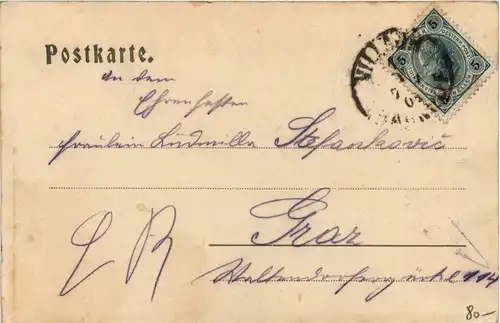 Postkarte.
An dem
Ehrenhaften
Fräulein Ludmilla Stefanković
Graz
Waltendorfergürtel 114
5 5
80-